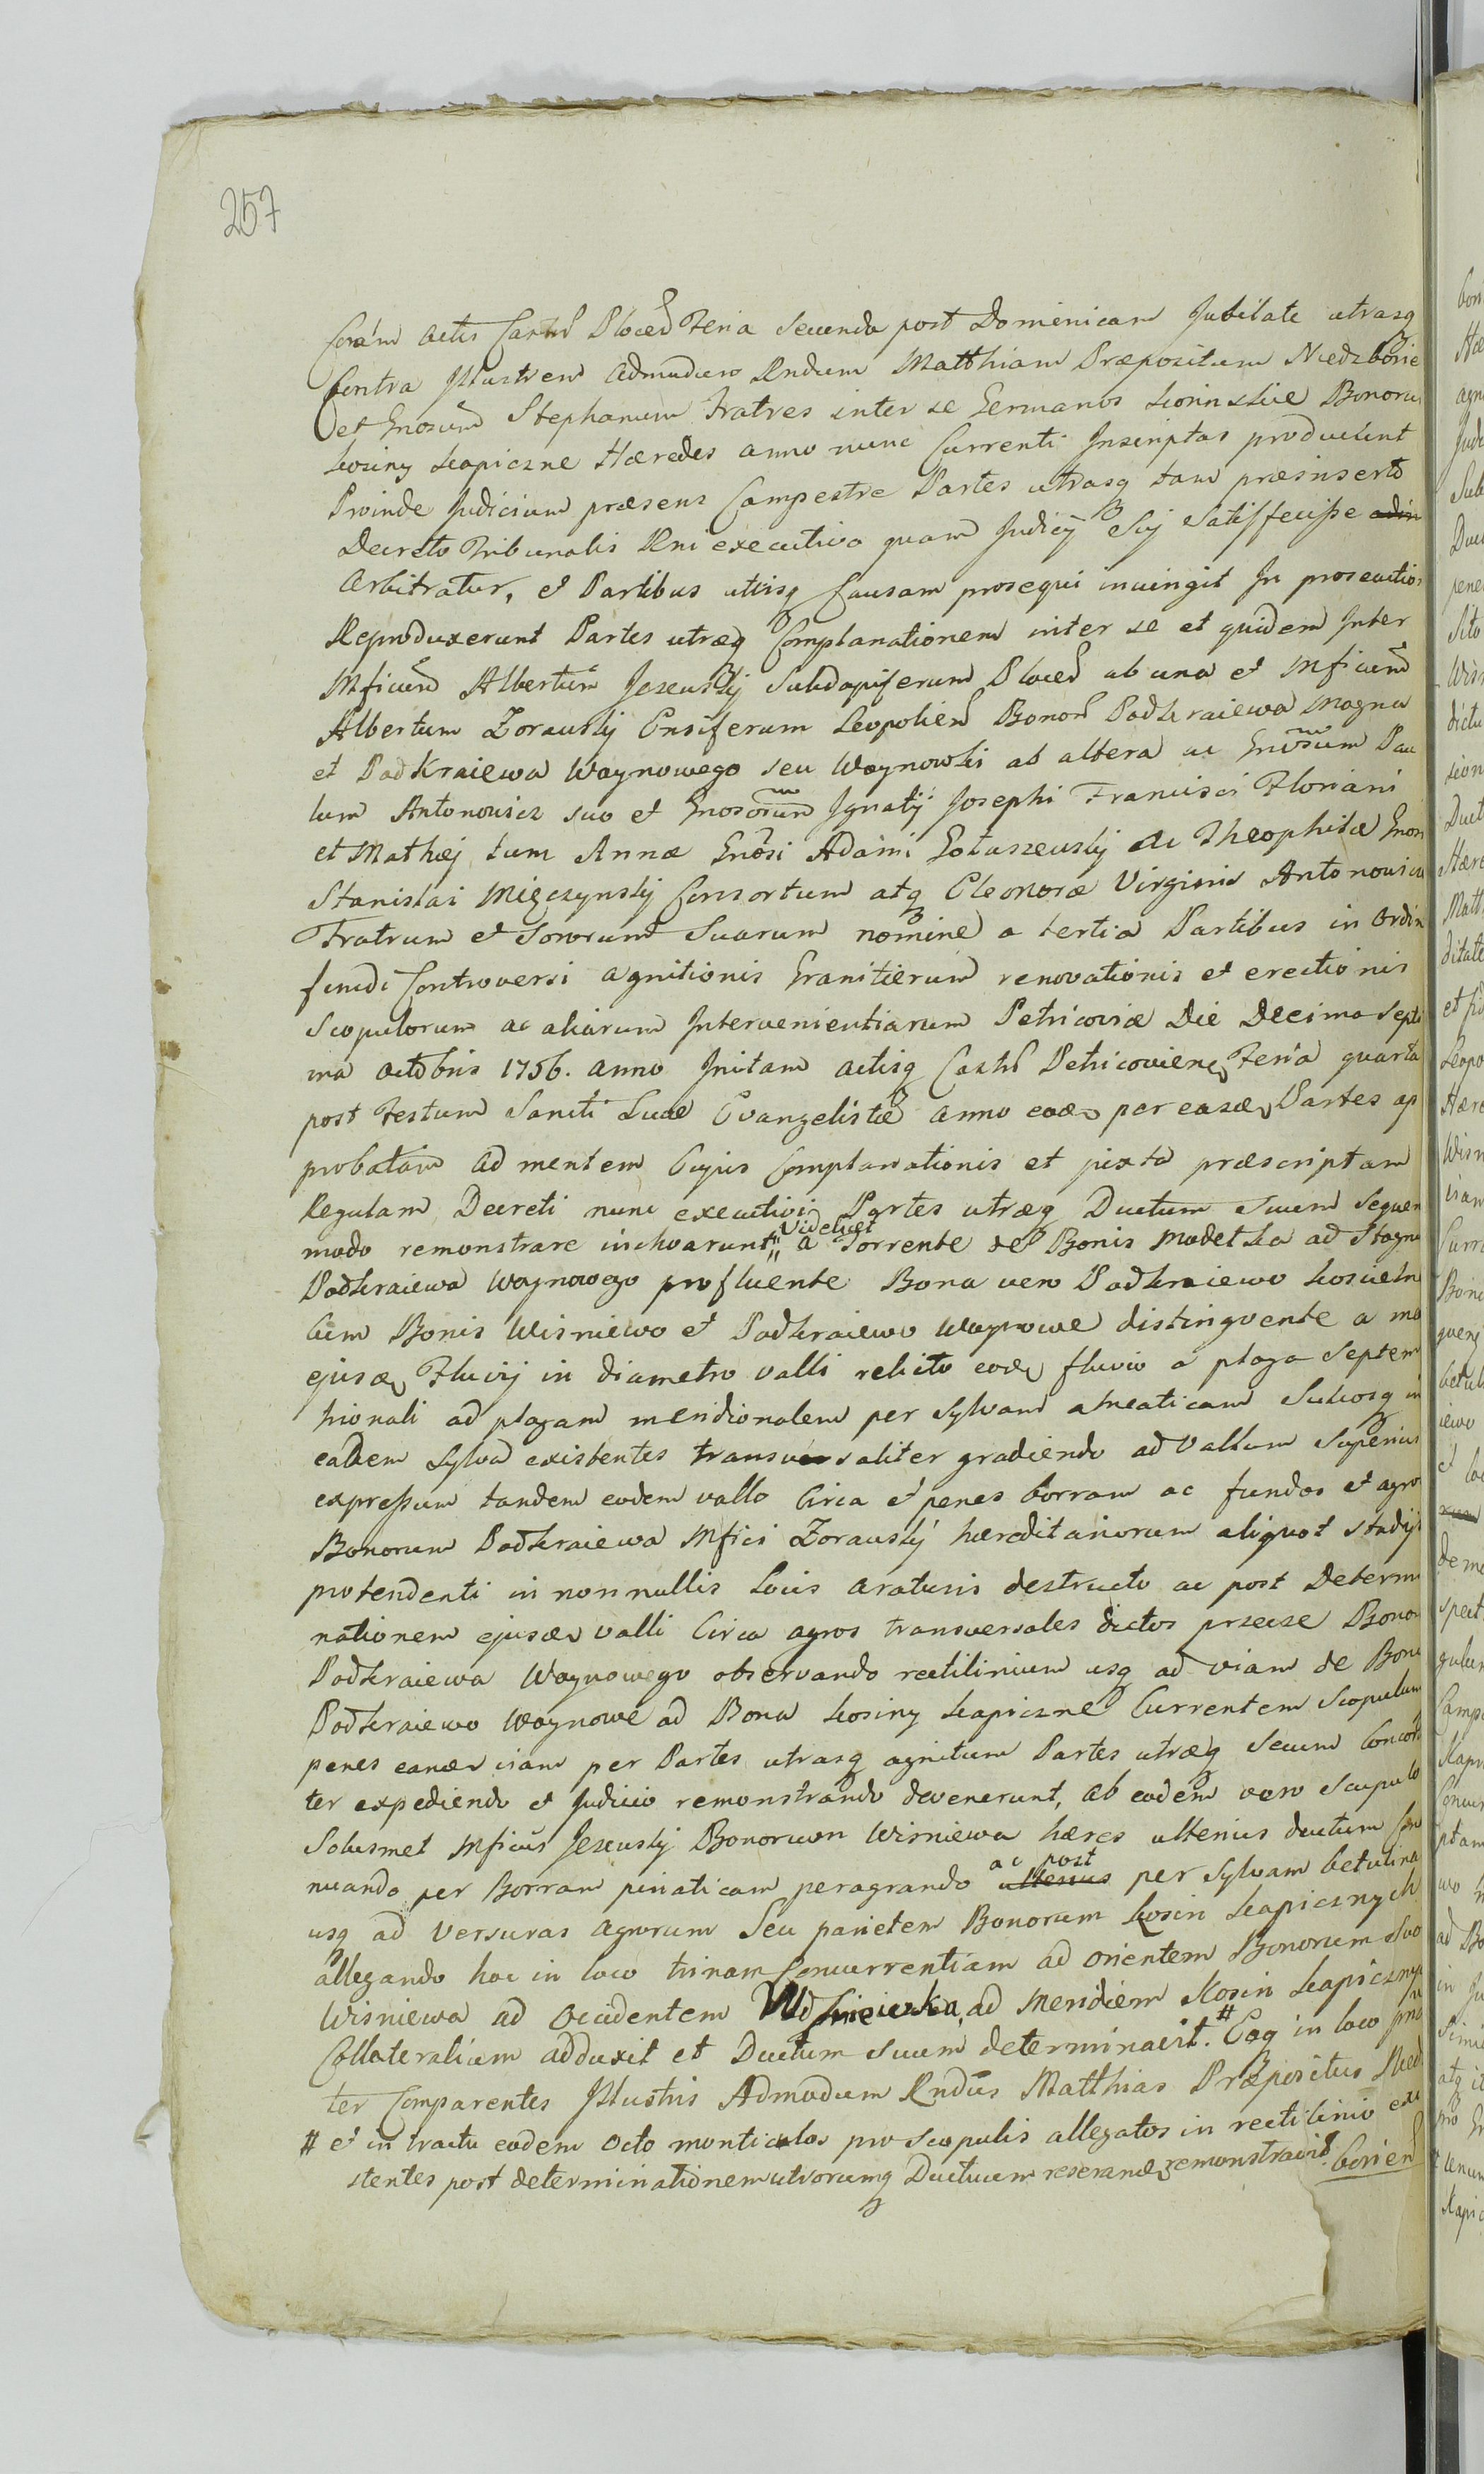 257
Coram Actis Castrs Ploced Feria Secunda post Dominicam Jubilate utrasq
Contra Jllustrem Admodum Rndum Matthiam Præpositum Niedzborie
et Gnosum Stephanum Fratres inter se Germanos Bonoru
Kosiny Kapiczne Hæredes anno nunc Currenti Jnscriptas produxerunt
Proinde Judicium præsens Campestre Partes utrasq tam præinserto
Decreto Tribunalis Rni executivo quam Judicÿ Suj Satisfecisse
Arbitratur, et Partibus utrisq Causam prosequi iniungit Jn prosecutio
Reproduxerunt Partes utræq Complanationem inter se et quidem Jnter
Mficum Albertum Jezewskij Subdapiferum Ploced ab una et Mficum
Albertum Zorawskij Ensiferum Leopolien Bonor Podkraiewa Magna
et Podkraiewa Woynowego seu Woynowski ab altera ac Gnosum Pau
lum Antonowicz suo et Gnosorum Jgnatij Josephi Francisci Floriani
et Mathæj tum Annæ Gnosi Adami Gołaszewskij ac Theophilæ Gnosi
Stanislai Mięczynskij Consortum atq Eleonoræ Virginis Antonowicz
Fratrum et Sororum Suarum nomine a tertia Partibus in Ordin
fundi Controversi agnitionis Granitierum renovationis et erectionis
Scopulorum ac aliarum Jntervenientiarum Petricoviæ Die Decima Septi
ma Octobris 1756. anno Jnitam actisq Castrs Petricovien Feria quarta
post Festum Sancti Lucæ Evangelistæ anno eod per easd Partes ap
probatam ad mentem Cujus Complanationis et juxta præscriptam
Regulam Decreti nunc executivi Partes utræq Ductum Suum Sequen
Videlicet
modo remonstrare inchoarunt a Torrente de Bonis Modełka ad Stagna
Podkraiewa Woynowego profluente Bona vero Podkraiewo Koscieln
Cum Bonis Wisniewo et Podkraiewo Woynowe distingvente a
ejusd Fluvij in diametro valli relicto eod fluvio a plaga Septem
trionali ad plagam meridionalem per Sylvam alneaticam Sulcosq in
eadem Sylva existentes transversaliter gradiendo ad Vallum Superius
expressum tandem eodem vallo Circa et penes borram ac fundos et agros
Bonorum Podkraiewa Mfici Zorawskij hæreditariorum aliquot stadijs
protendenti in nonnullis Locis araturis destructo ac post Determi
nationem ejusd valli Circa agros transversales dictos præcise Bonor
Podkraiewa Woynowego observando rectilinium usq ad viam de Bonis
Podkraiewo Woynowe ad Bona Kosiny Kapiczne Currentem Scopulum
penes eand viam per Partes utrasq agnitum Partes utræq Secum Concor
ter expediendo et Judicio remonstrando devenerunt, ab eodem vero Scopulo
Solusmet Mficus Jezewskij Bonorum Wisniewa hæres ulterius ductum Con
ac post
nuando per Borram pineaticam peragrando ulterius per Sylvam betulina
usq ad Versuras Agrorum Seu parietem Bonorum Kosin Kapicznych
allegando hoc in loco trinam Concurrentiam ad Orientem Bonorum Suo
Wisniewa ad Occidentem ad Meridiem Kosin Kapicznych
Collateralium adduxit et Ductum Suum determinavit. # Eoq in loco
ter Comparentes Jllustris Admodum Rndus Matthias Præpositus Nied
# et in tractu eodem Octo monticulos pro Scopulis allegatos in rectilinio exi
stentes post determinationem utrorumq Ductuum remonstravit. borien